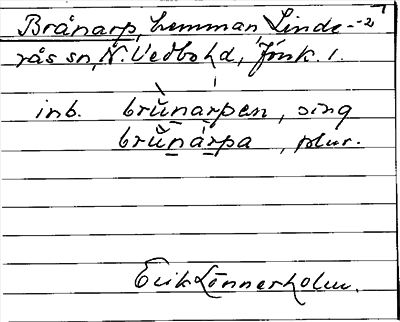 Brånarp, hemman, Linde-
rås sn, N. Vedbo hd, Jönk. l.
inb. brùnarpen, sing
brùnàrpa, plur.
Erik Lönnerholm.